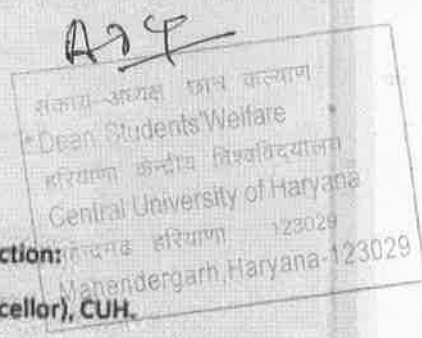 संकाय-अध्यक्ष छात्र कल्याण
Dean Students'Welfare
हरियाणा केन्द्रीय विश्वविद्यालय
Central University of Haryana
हरियाणा 123029
Mahendergarh,Haryana-123029
ction:
cellor), CUH.